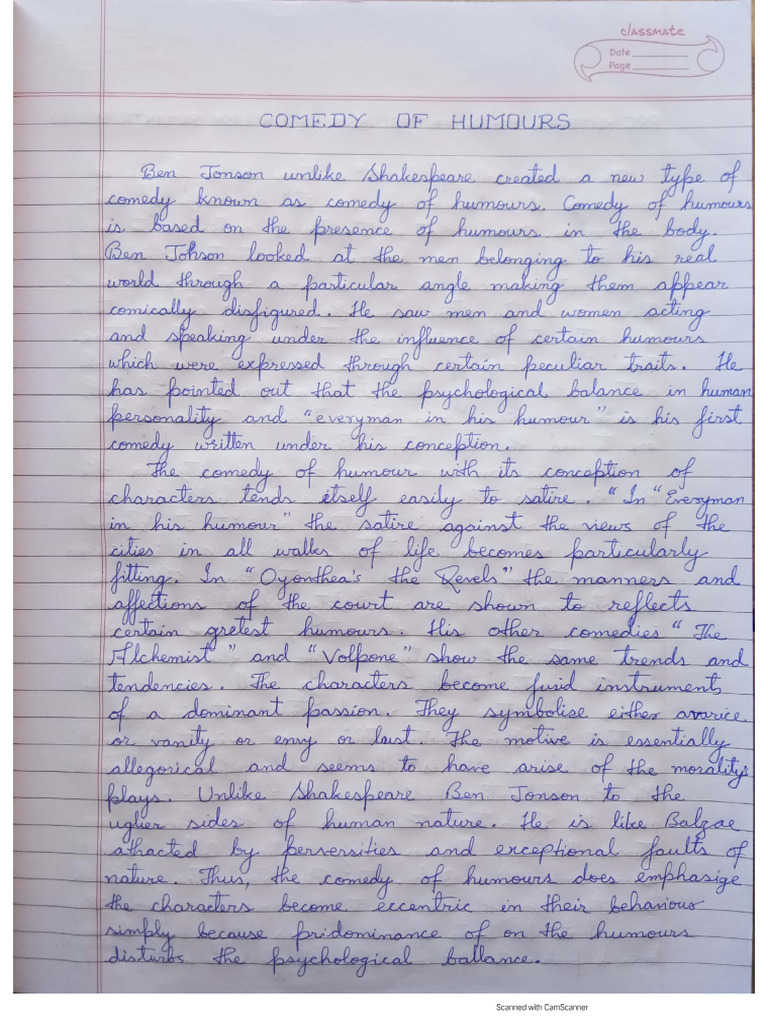 classmate
Date
Page
COMEDY OF HUMOURS
Ben Jonson unlike Shakespeare created a new type of
comedy known as comedy of humours. Comedy of humours
is based on the presence of humours in the body.
Ben Johson looked at the men belonging to his real
world through a particular angle making them appear
comically disfigured. He saw men and women acting
and speaking under the influence of certain humours
which were expressed through certain peculiar traits. He
has pointed out that the psychological balance in human
personality and "everyman in his humour" is his first
comedy written under his conception.
The comedy of humour with its conception of
characters tends itself easily to satire. "In "Everyman
in his humour" the satire against the views of the
cities in all walks of life becomes particularly
fitting. In "Oyonthea's the Revels" the manners and
affections of the court are shown to reflects
certain gretest humours. His other comedies "The
Alchemist" and "Volpone" show the same trends and
tendencies. The characters become instruments
of a dominant passion. They symbolise either avarice
or vanity or envy or lust. The motive is essentially
allegorical and seems to have arise of the morality's
plays. Unlike Shakespeare Ben Jonson to the
uglier sides of human nature. He is like Balzae
athacted by perversities and exceptional faults of
nature. Thus, the comedy of humours does emphasige
the characters become eccentric in their behaviour
simply because pridominance of on the humours
disturbs the psychological ballance.
Scanned with CamScanner